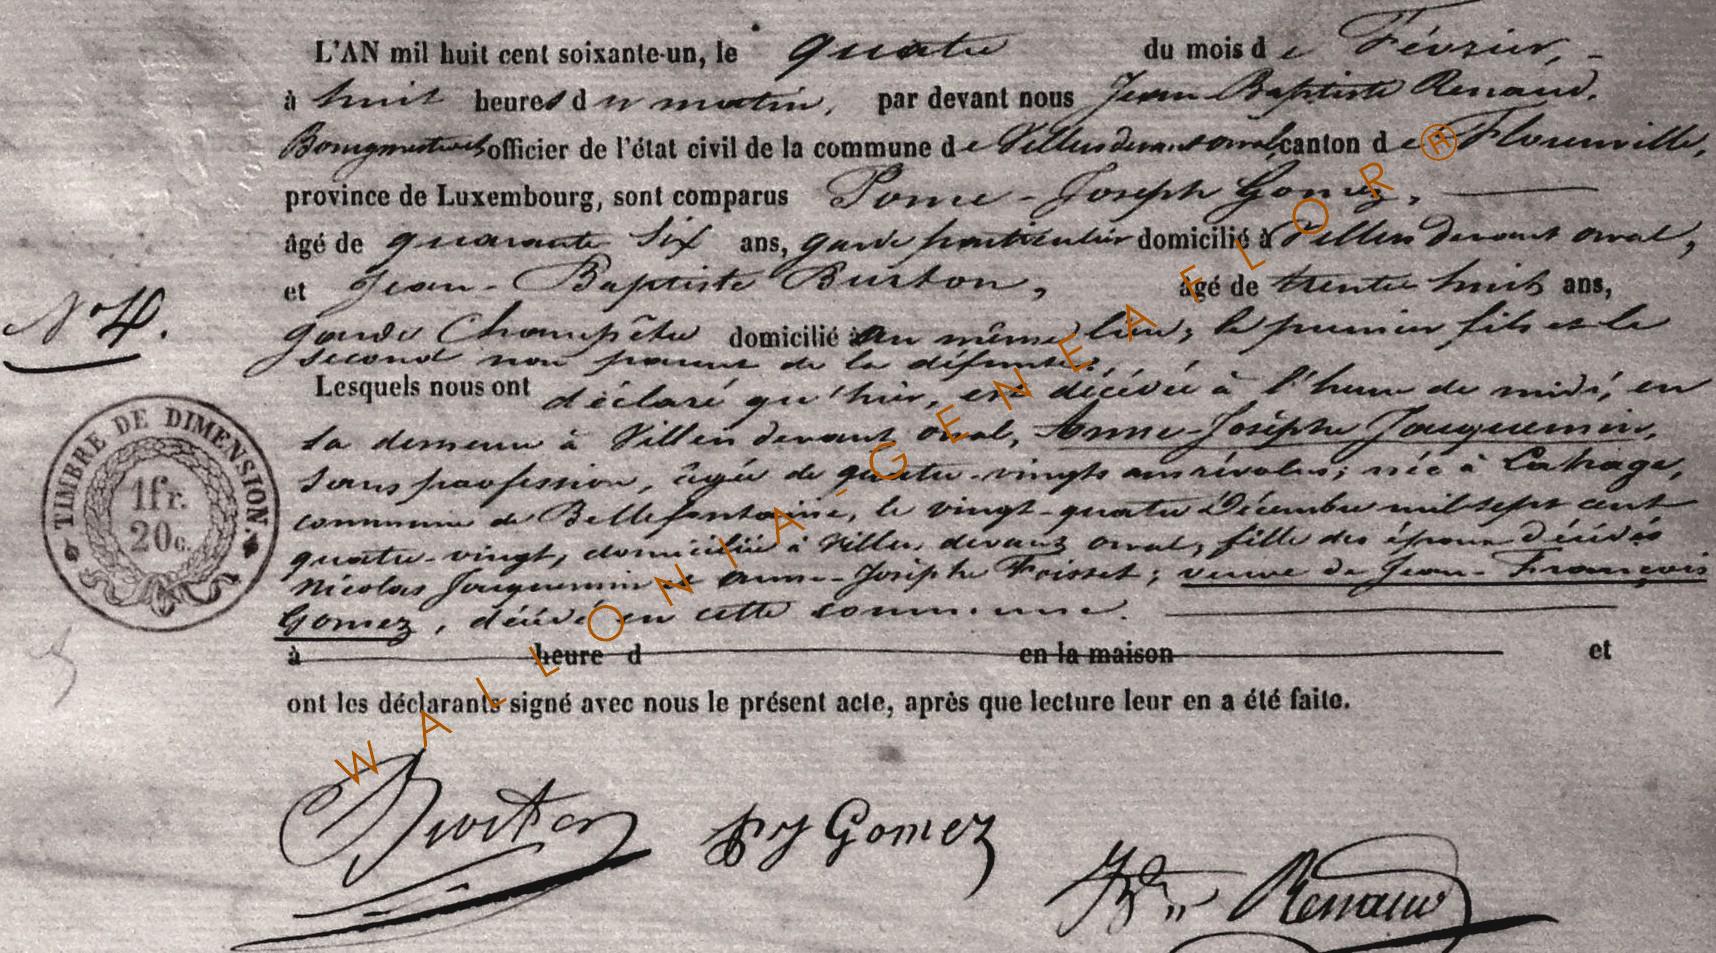 L'AN mil huit cent soixante-un, le quatre du mois de Février,
à huit heures du matin, par devant nous Jean-Baptiste Renaud,
Bourgmestre officier de l'état civil de la commune de Villers devant orval, canton de Florenville,
province de Luxembourg, sont comparus Joseph Gomez,
âgé de quarante six ans, garde particulier domicilié à Villers devant orval,
et Jean-Baptiste Burton, âgé de trente huit ans,
N° 4.
garde Champêtre domicilié au même lieu; le premier fils et le
second non parent de la défunte;
Lesquels nous ont déclaré qu'hier, est décédée à l'heure de midi, en
sa demeure à Villers devant orval, Anne-Josèphe Jacquemin,
sans profession, âgée de quatre-vingts ans révolus; née à Lahage,
commune de Bellefontaine, le vingt-quatre Décembre mil sept cent
quatre-vingt, domiciliée à Villers devant orval, fille des époux décédés
Nicolas Jacquemin et Anne-Josèphe Foisset; veuve de Jean-François
Gomez, décédé en cette commune.
TIMBRE DE DIMENSION.
1fr.
20c.
à heure d en la maison et
ont les déclarants signé avec nous le présent acte, après que lecture leur en a été faite.
Burton PJ Gomez
Renaud
WALLONIA-GENEAFLOR®